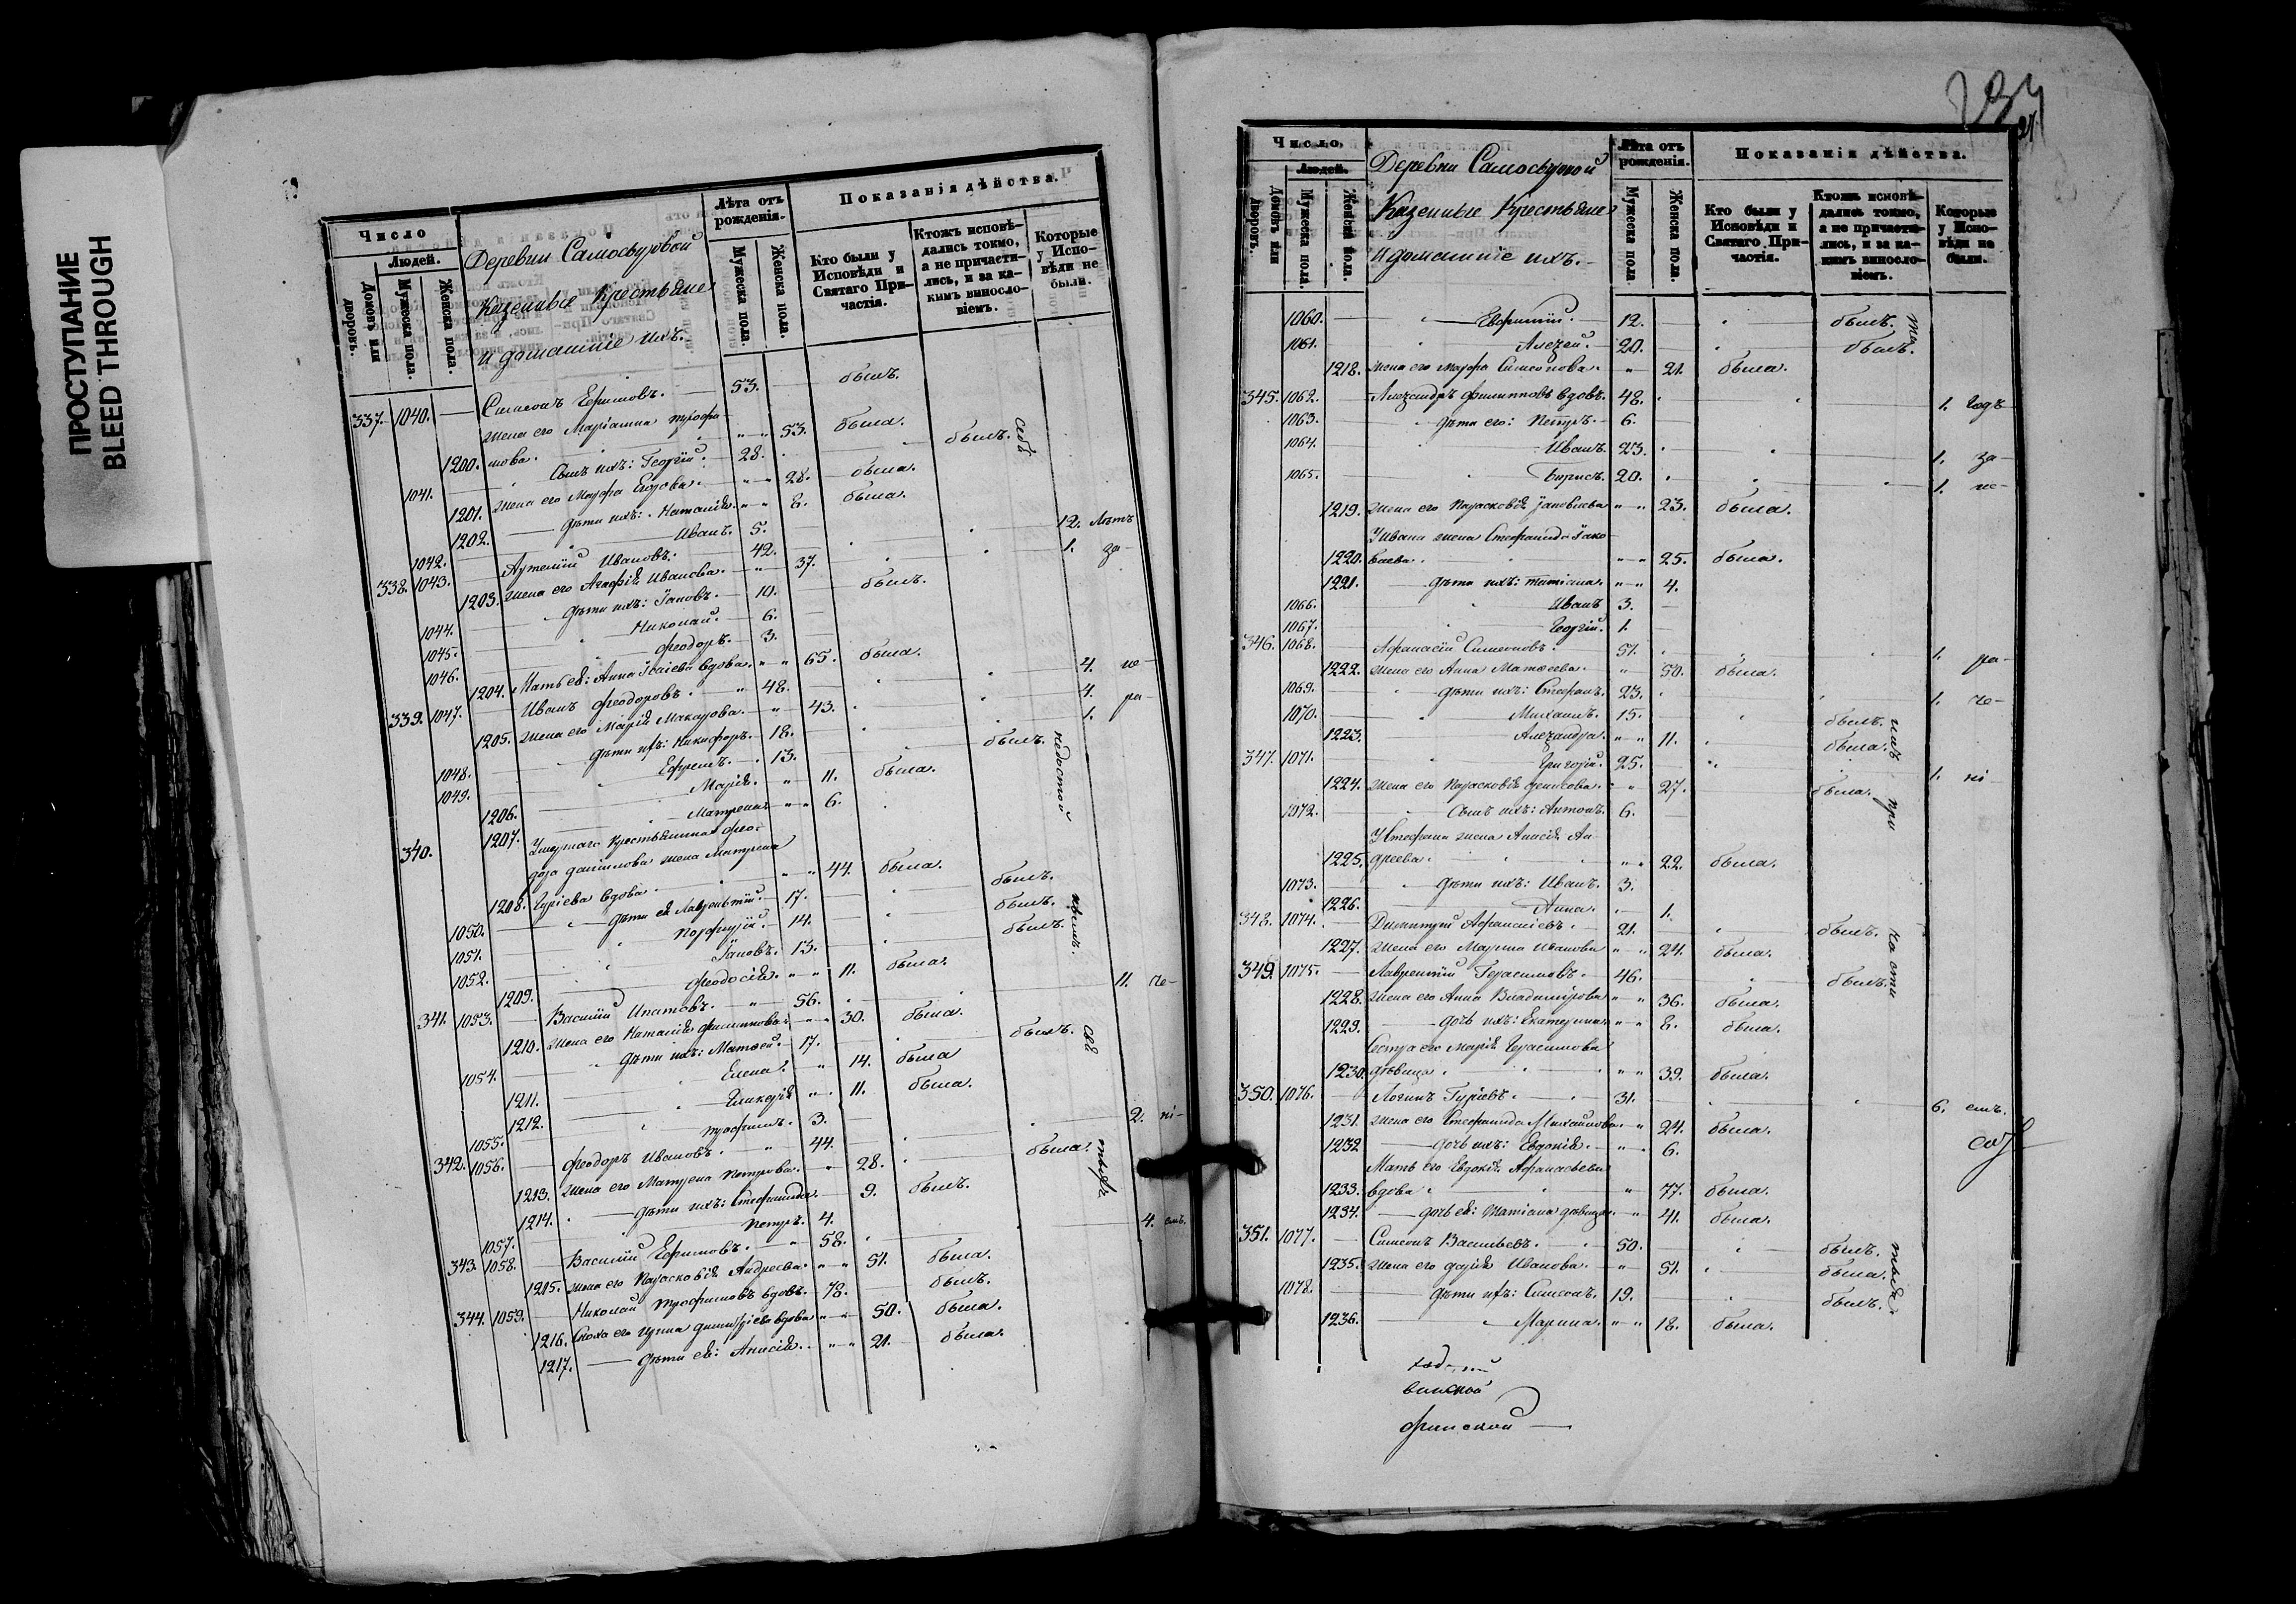 ПРОСТУПАНИЕ
BLEED THROUGH
Число
Людей.
Домовъ или дворовъ.
Мужеска пола.
Женска пола.
Деревни
Казенные Крестьяне
и домашніе ихъ.
Лѣта отъ рожденія.
Мужеска пола.
Женска пола.
Показанія дѣйства.
Кто были у Исповѣди и Святаго Причастія.
Ктожъ исповѣдались токмо, а не причастились, и за какимъ винословіемъ.
Которые у Исповѣди не были.
337. 1040. Симеонъ Ефимовъ. 53. былъ.
жена его Маріамна Трофи-
1200. мова. 53. была.
1041. Сынъ ихъ: Георгій. 28. былъ.
1201. жена его Марфа Егорова. 28. была.
1202. дѣти ихъ: Наталія. 8. была.
1042. Иванъ. 5.
338. 1043. Артемій Ивановъ. 42. 12. лѣтъ
1203. жена его Агафія Иванова. 37. 1. за-
1044. дѣти ихъ: Іаковъ. 10. былъ.
1045. Николай. 6.
1046. Феодоръ. 3.
1204. Мать ея: Анна Ісаіева вдова. 65. была.
339. 1047. Иванъ Феодоровъ. 48. 4. не-
1205. жена его Марія Макарова. 43. 4. ра-
1048. дѣти ихъ: Никифоръ. 18. 1.
1049. Ефремъ. 13. былъ.
1206. Марія. 11. была.
1207. Матрена 6.
340. Умершаго Крестьянина Фео-
дора Данилова жена Матрена
1208. Гуріева вдова. 44. была.
1050. дѣти ея Лаврентій. 17. былъ.
1051. Порфирій. 14. былъ.
1052. Іаковъ. 13. былъ.
1209. Феодосія. 11. была.
341. 1053. Василій Ипатовъ. 56. 11. че-
1210. жена его Наталія Филиппова. 30. была.
1054. дѣти ихъ: Матвей. 17. былъ.
1211. Елена. 14. была
1212. Гликерія 11. была.
1055. Трофимъ. 3.
342. 1056. Феодоръ Ивановъ. 44. 2. ні-
1213. жена его Матрена Петрова. 28. была.
1214. дѣти ихъ: Стефанида. 9. былъ.
1057. Петръ. 4.
343. 1058. Василій Ефимовъ. 58. 4. емъ.
1215. жена его Парасковія Андреева. 51. была.
344. 1059. Николай Трофимовъ вдовъ. 78. былъ.
1216. Сноха его Ирина Димитріева вдова 50. была.
1217. дѣти ея: Анисія. 21. была.
Число
Людей.
Домовъ или дворовъ.
Мужеска пола.
Женска пола.
Деревни
Казенные Крестьяне
и домашніе ихъ.
Лѣта отъ рожденія.
Мужеска пола
Женска пола.
Показанія дѣйства.
Кто были у Исповѣди и Святаго Причастія.
Ктожъ исповѣдались токмо, а не причастились, и за какимъ винословіемъ.
Которые у Исповѣди не были.
1060. Евфимій. 12. былъ.
1061. Алезей. 20. былъ.
1218. жена его Марфа Симеонова. 21. была.
345. 1062. Алезандръ Филипповъ вдовъ. 48. 1. годъ
1063. дѣти его: Петръ. 6.
1064. Иванъ. 23. 1. за-
1065. Борисъ. 20. 1. не-
1219. жена его Парасковія Іаковлева 23. была.
У Ивана жена Стефанида Іако-
1220. влева. 25. была.
1221. дѣти ихъ: Татіана. 4.
1066. Иванъ 3.
1067. Георгій. 1.
346. 1068. Афанасій Симеоновъ. 51. 1. ра-
1222. жена его Анна Матвеева. 50. была.
1069. дѣти ихъ: Стефанъ. 23. 1. че-
1070. Михаилъ. 15. былъ.
1223. Алезандра. 11. была.
347. 1071. Григорій. 25. 1. ні
1224. жена его Парасковія Денисова. 27. была.
1072. Сынъ ихъ: Антонъ. 6.
У Стефана жена Анисія Ан-
1225. дреева. 22. была.
1073. дѣти ихъ: Иванъ. 3.
1226. Анна. 1.
348. 1074. Димитрій Афанасіевъ. 21. былъ.
1227. жена его Марина Иванова 24. была.
349. 1075. Лаврентій Герасимовъ. 46. былъ.
1228. жена его Анна Владимірова 36. была.
1229. дочь ихъ: Екатерина 8. была.
Сестра его Марія Герасимова
1230. дѣвица. 39. была.
350. 1076. Логинъ Гуріевъ. 31. 6. емъ.
1231. жена его Стефанида Михайлова 24. была.
1232 дочь ихъ: Евдокія. 6.
Мать его Евдокія Афанасьева
1233. вдова. 77. была.
1234. дочь ея: Татіана дѣвица. 41. была.
351. 1077. Симеонъ Васильевъ. 50. былъ.
1235. жена его Дарія Иванова. 51. была.
1078. дѣти ихъ: Симеонъ. 19. былъ.
1236. Марина. 18. была.